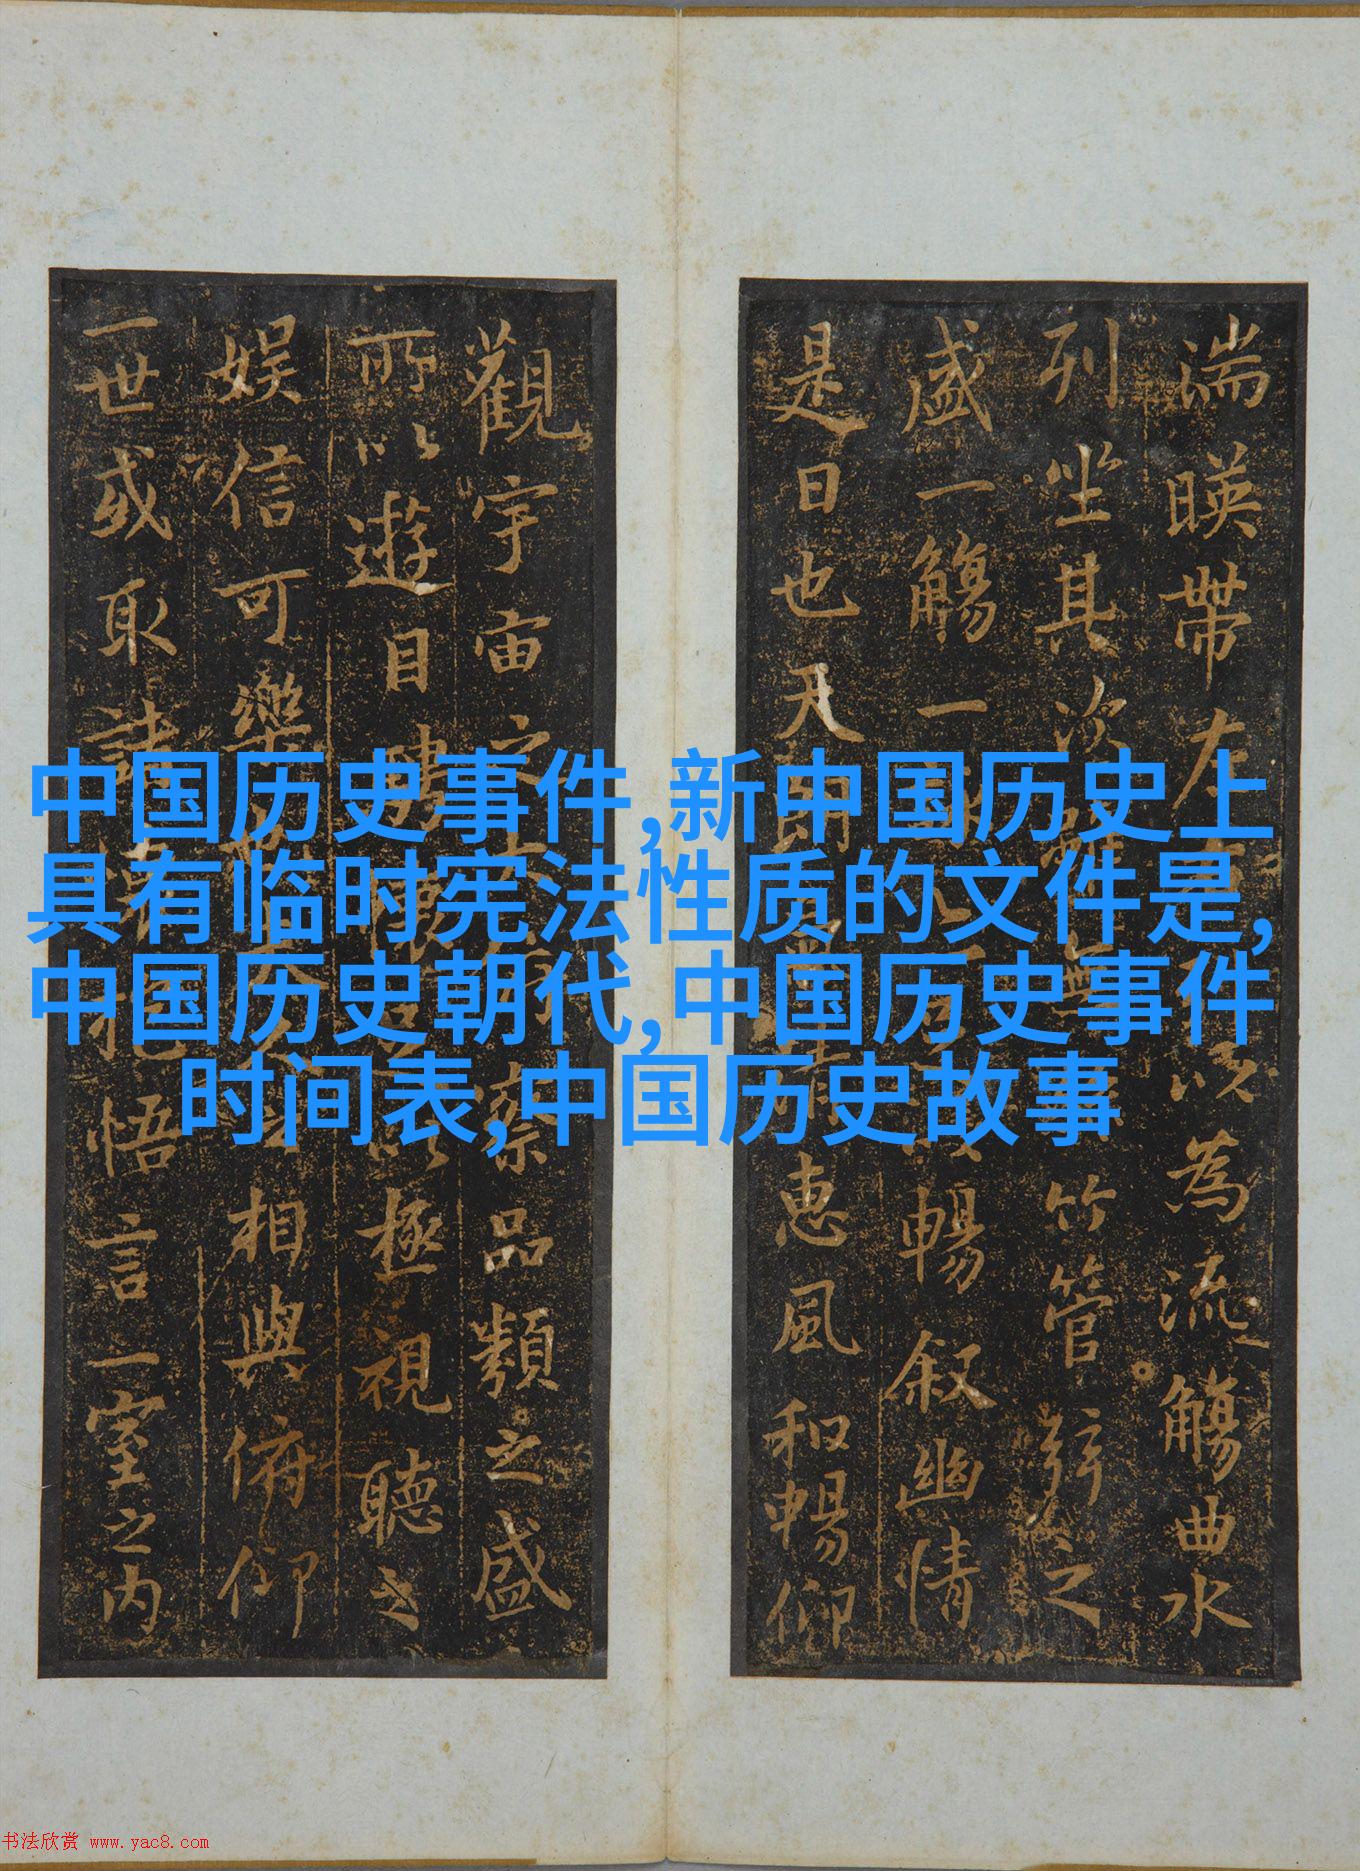 湍暎帶左以為流觴曲水
列坐其次雖無竹管弦之
盛一觴一暢叙幽情
是日也天朗惠風和暢仰
觀宇宙之察品類之盛
所以遊目騁以極視聽之
娱信可樂相與俯仰
一世或取諸抱悟言一室之内
中国历史事件,新中国历史上
具有临时宪法性质的文件是,
中国历史朝代,中国历史事件
时间表,中国历史故事
书法欣赏 www.yac8.com